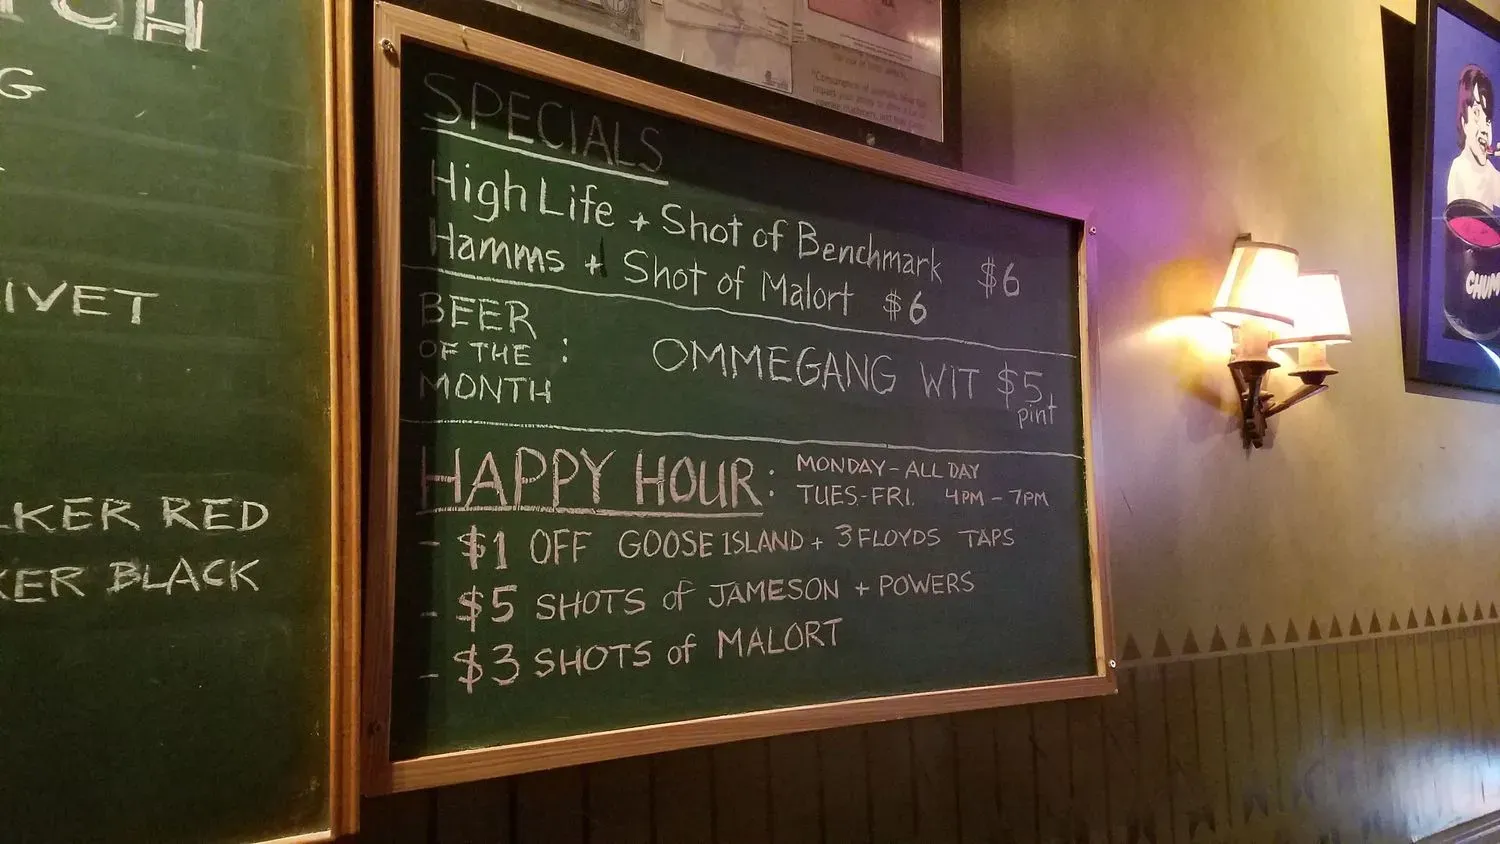 TCH
G
IVET
LKER RED
KER BLACK
SPECIALS
High Life + Shot of Benchmark $6
Hamms + Shot of Malort $6
BEER
OF THE :
MONTH
OMMEGANG WIT $5
pint
HAPPY HOUR:
MONDAY - ALL DAY
TUES-FRI. 4PM - 7PM
- $1 OFF GOOSE ISLAND + 3 FLOYDS TAPS
- $5 SHOTS of JAMESON + POWERS
- $3 SHOTS of MALORT
CHUM